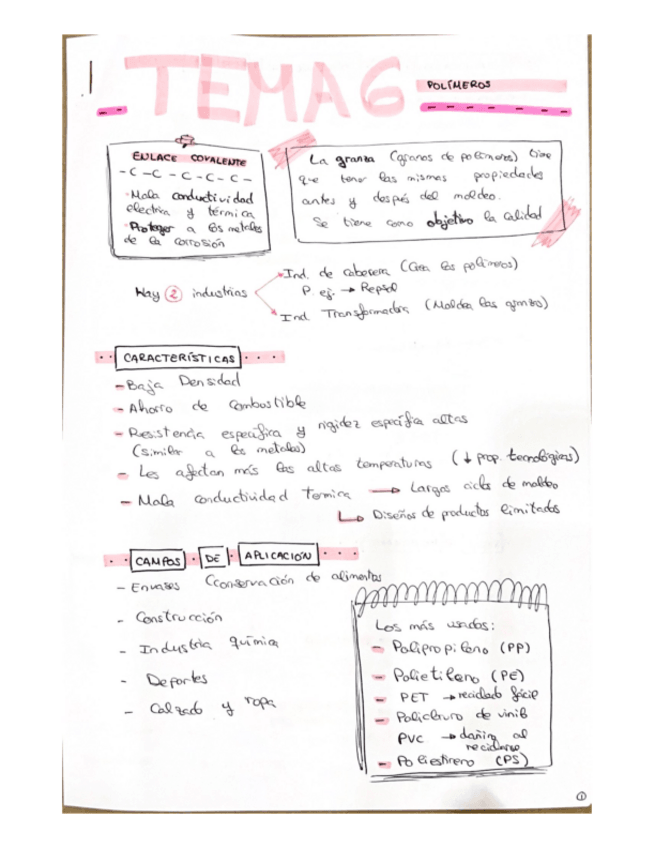 TEMA 6
POLÍMEROS
ENLACE COVALENTE
-C-C-C-C-C-
· Mala conductividad
eléctrica y térmica
· Proteger a los metales
de la corrosión
La granza (granos de polímeros) tiene
que tener las mismas propiedades
antes y después del moldeo.
Se tiene como objetivo la calidad
Hay 2 industrias
Ind. de cabecera (Crea los polímeros)
P. ej. → Repsol
Ind. Transformadora (Moldea las granzas)
CARACTERÍSTICAS
- Baja Densidad
- Ahorro de combustible
- Resistencia específica y rigidez específica altas
(similar a los metales)
- Les afectan más las altas temperaturas (↓ prop. tecnológicas)
- Mala conductividad termica → Largos ciclos de moldeo
↳ Diseños de productos limitados
CAMPOS DE APLICACIÓN
- Envases (conservación de alimentos
- Construcción
- Industria química
- Deportes
- Calzado y ropa
Los más usados:
- Polipropileno (PP)
- Polietileno (PE)
- PET → reciclado fácil
- Policloruro de vinilo
PVC → dañino al
reciclarse
- Poliestireno (PS)
1